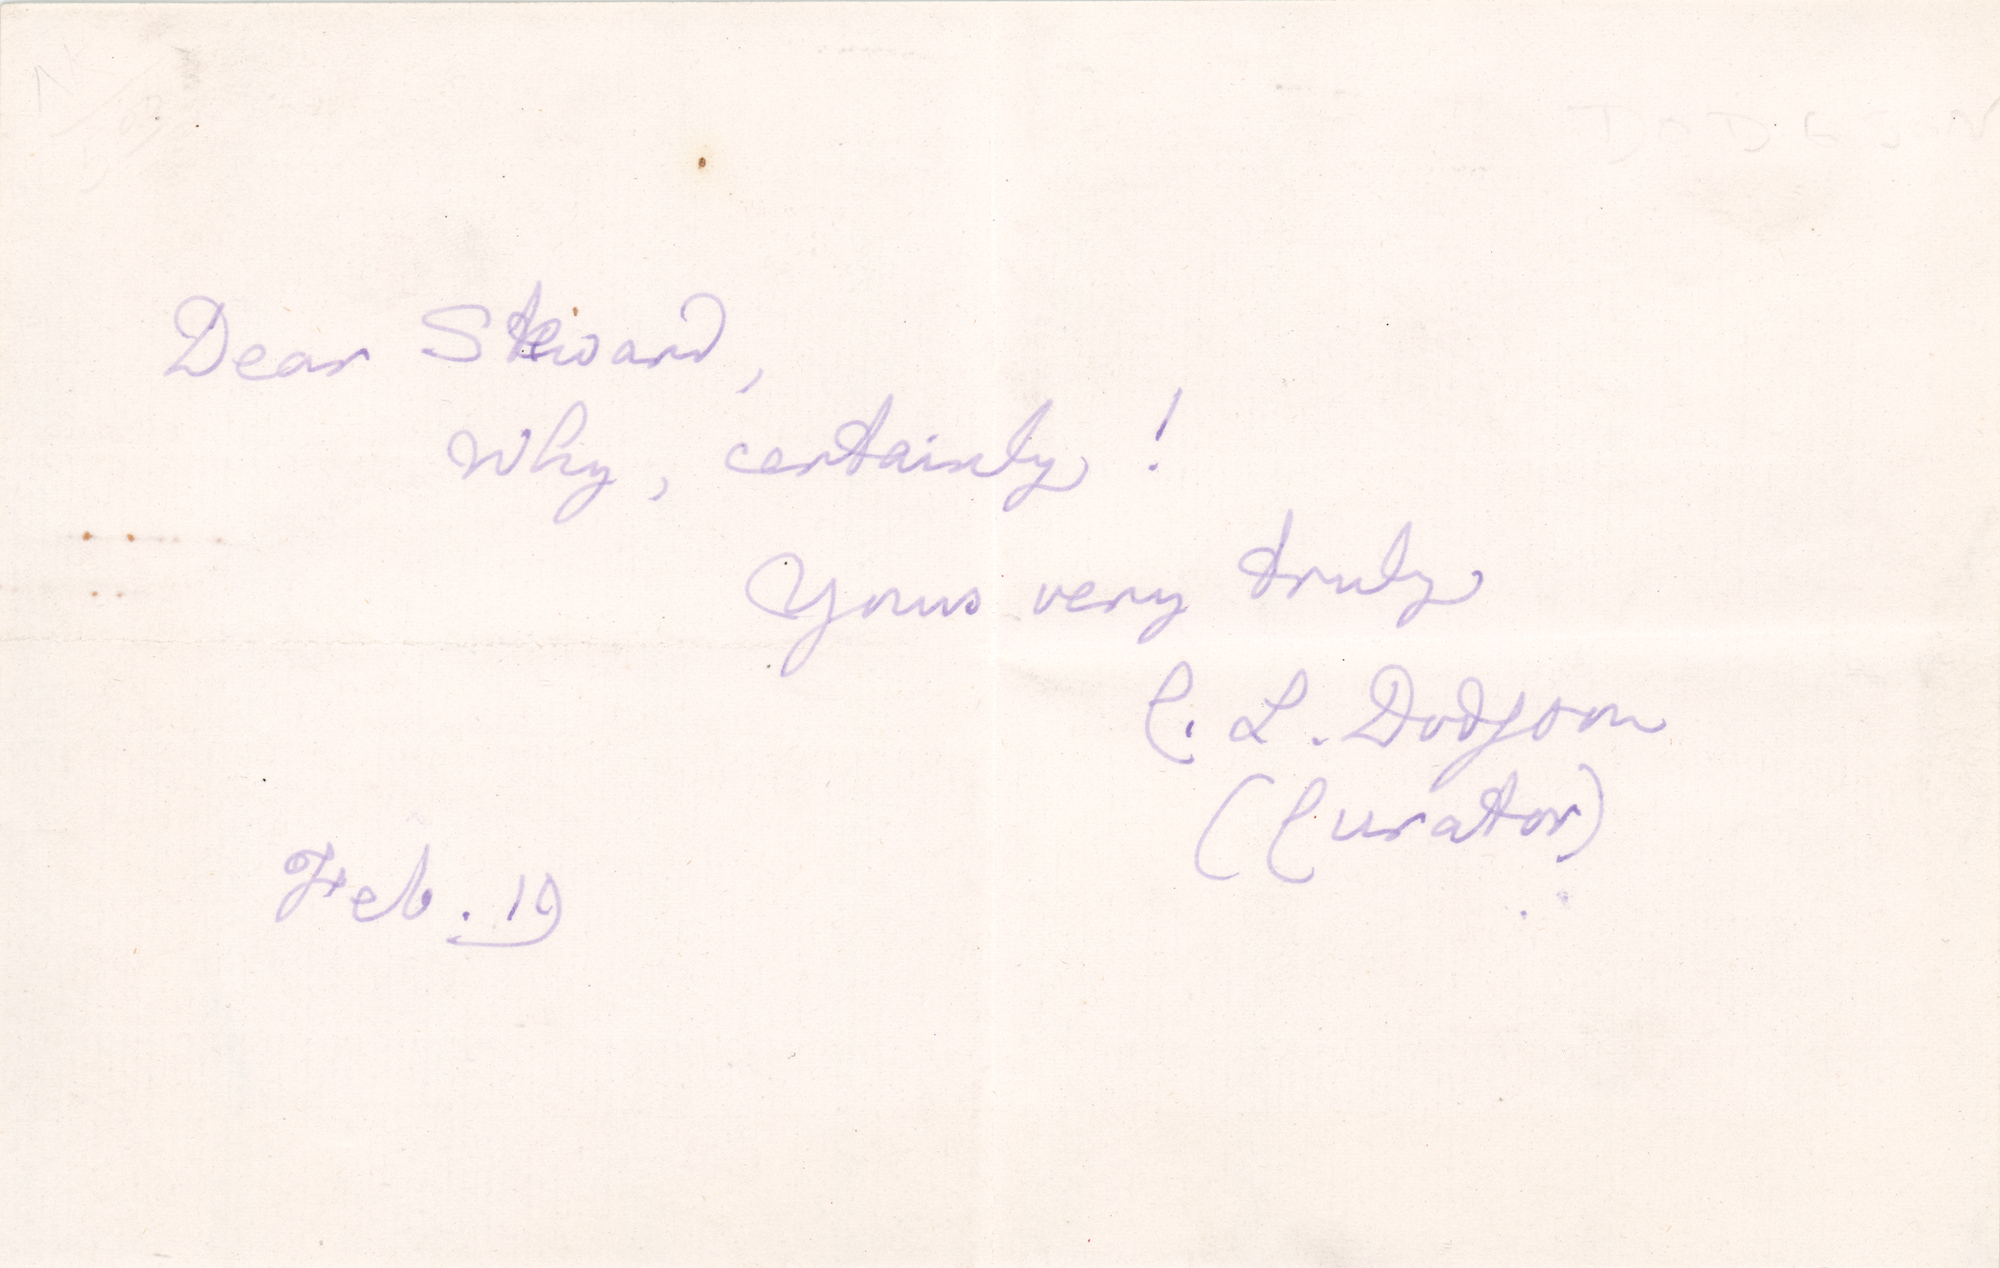 DODGSON
Dear Steward,
Why, certainly!
Yours very truly
C. L. Dodgson
(Curator)
Feb. 19